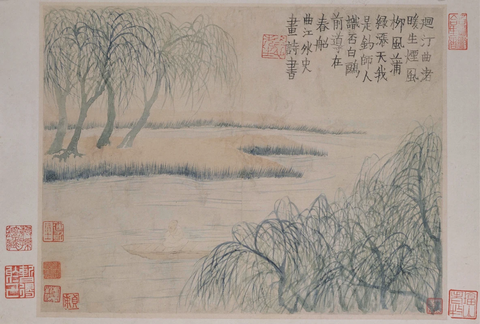 迴汀曲渚
暖生煙風
柳風蒲
綠漲天我
是釣師人
識否白鷗
前導在
春船
曲江外史
畫詩書